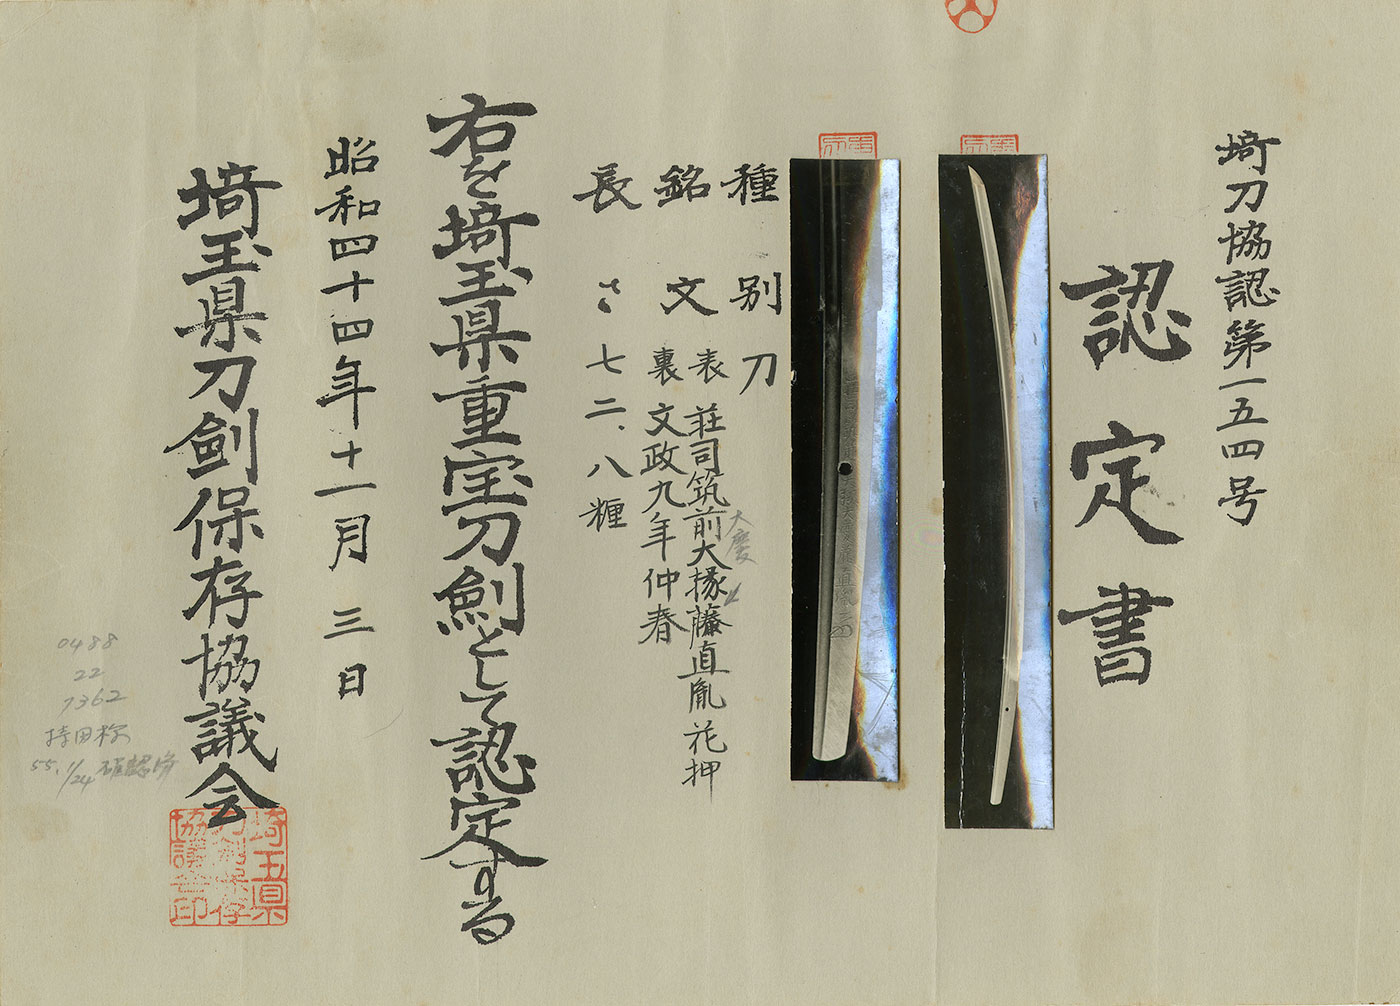 埼刀協認第一五四号
認定書
種別 刀
銘文 表 荘司筑前大掾藤直胤 花押
大慶
裏 文政九年仲春
長さ 七二、八糎
右を埼玉県重宝刀劍として認定する
昭和四十四年十一月三日
埼玉県刀劍保存協議会
埼玉県刀剣保存協議会印
0488
22
7362
持田
55. 1/24 確認済